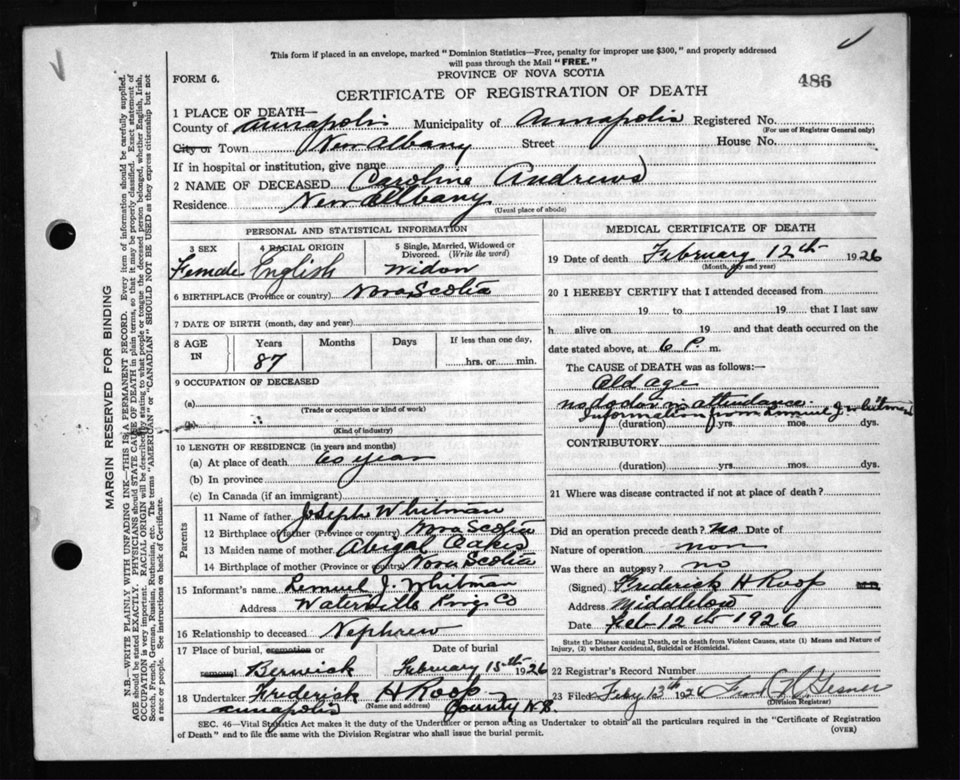 This form if placed in an envelope, marked "Dominion Statistics—Free, penalty for improper use $300," and properly addressed
will pass through the Mail "FREE."
PROVINCE OF NOVA SCOTIA
FORM 6.
CERTIFICATE OF REGISTRATION OF DEATH
486
1 PLACE OF DEATH—
County of Annapolis Municipality of Annapolis Registered No.
(For use of Registrar General only)
City or Town New Albany Street House No.
If in hospital or institution, give name
2 NAME OF DECEASED Caroline Andrews
Residence New Albany
(Usual place of abode)
PERSONAL AND STATISTICAL INFORMATION
3 SEX 4 RACIAL ORIGIN 5 Single, Married, Widowed or Divorced. (Write the word)
Female English Widow
6 BIRTHPLACE (Province or country) Nova Scotia
7 DATE OF BIRTH (month, day and year)
8 AGE IN Years Months Days If less than one day,
87 hrs. or min.
9 OCCUPATION OF DECEASED
(a)
(Trade or occupation or kind of work)
(Kind of industry)
10 LENGTH OF RESIDENCE (in years and months)
(a) At place of death 60 year
(b) In province
(c) In Canada (if an immigrant)
Parents
11 Name of father Joseph Whitman
12 Birthplace of father (Province or country) Nova Scotia
13 Maiden name of mother Abigal
14 Birthplace of mother (Province or country) Nova Scotia
15 Informant's name Lemuel J. Whitman
Address Waterville Kings Co
16 Relationship to deceased Nephrew
17 Place of burial, cremation or Date of burial
removal Berwick February 15th 1926
18 Undertaker Frederick H Roop
(Name and address)
Annapolis County N.S.
MEDICAL CERTIFICATE OF DEATH
19 Date of death February 12th 1926
(Month, day and year)
20 I HEREBY CERTIFY that I attended deceased from
19 to 19 that I last saw
h alive on 19 and that death occurred on
date stated above, at 6 P. m.
The CAUSE of DEATH was as follows:—
Old age
no doctor in attendance.
Information from Lemuel J Whitman
(duration) yrs. mos. dys.
CONTRIBUTORY
(duration) yrs. mos. dys.
21 Where was disease contracted if not at place of death?
Did an operation precede death? No Date of
Nature of operation non
Was there an autopsy? no
(Signed) Frederick H Roop M.D.
Address Middleton
Date Feb 12th 1926
State the Disease causing Death, or in death from Violent Causes, state (1) Means and Nature of
Injury, (2) whether Accidental, Suicidal or Homicidal.
22 Registrar's Record Number
23 Filed Feby 13th 1926
(Division Registrar)
SEC. 46—Vital Statistics Act makes it the duty of the Undertaker or person acting as Undertaker to obtain all the particulars required in the "Certificate of Registration
of Death" and to file the same with the Division Registrar who shall issue the burial permit.
(OVER)
MARGIN RESERVED FOR BINDING
N.B.—WRITE PLAINLY WITH UNFADING INK—THIS IS A PERMANENT RECORD. Every item of information should be carefully supplied.
AGE should be stated EXACTLY. PHYSICIANS should STATE CAUSE OF DEATH in plain terms, so that it may be properly classified. Exact statement of
OCCUPATION is very important. RACIAL ORIGIN will be described by stating to what people or tongue the deceased person belonged, whether English, Irish,
Scotch, French, German, Russian, Ruthenian, etc. The terms "AMERICAN" or "CANADIAN" SHOULD NOT BE USED as they express citizenship but not
a race or people. See instructions on back of Certificate.